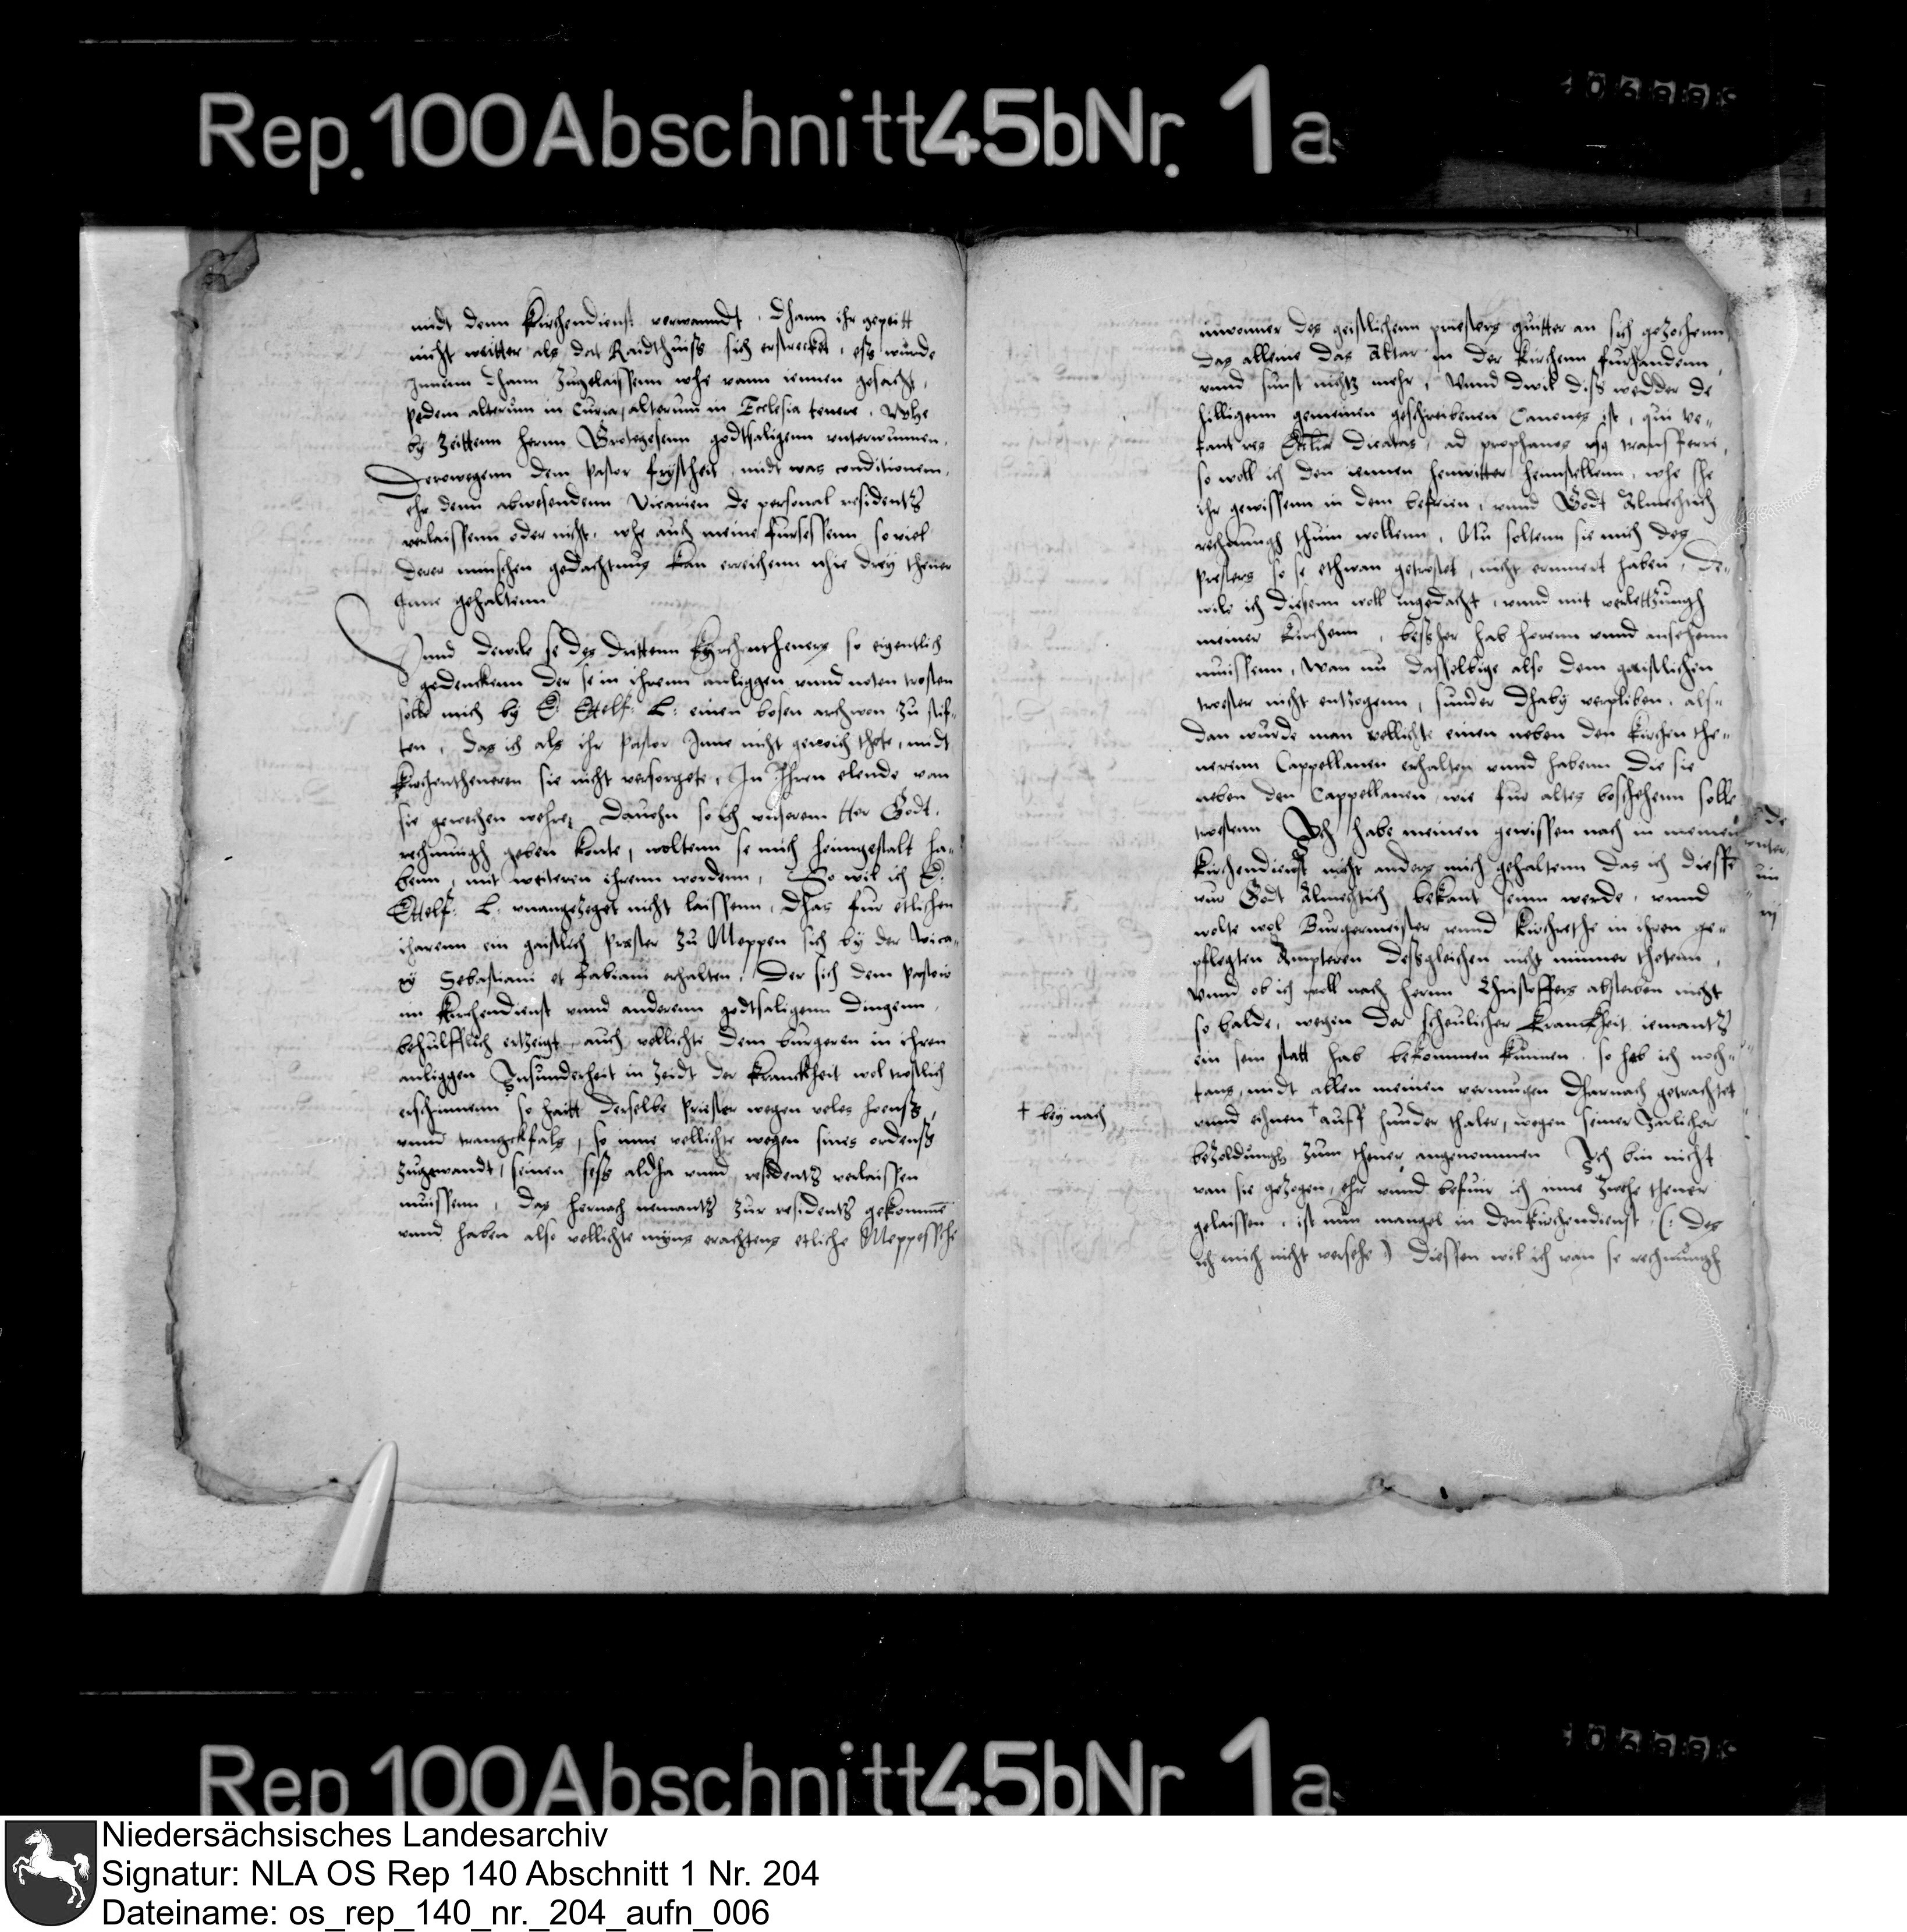 Rep. 100 Abschnitt 45b Nr. 1a
midt denn Kirchendienst verwanndt. Dhann ihr gepeitt
nicht weitter als dat Raidthuiß sich erstrecket, eß wurde
Innenn dhann zugelaissenn whe vann iennen gesacht,
pedem alterum in Curia, alterum in Ecclesia tenere, whe
by zeittenn hernn Grotegesenn godtsaligenn unterwunnen,
Derowegenn dem pastor frystheit, midt was conditionem,
ehr denn abwesendenn Vicarien de personal residentz
verlaissenn oder nicht, whe auch meine fursessenn so viel
derer minschen gedachtnus kan erreichenn nhie drey thener
Inne gehaltenn
Vnnd dewile se des drittenn Kyrchentheners so eigentlich
gedenckenn der se in ihrenn anliggen vnnd noten trosten
solle mich by E. Ettelf: L: einen bosen archwon zu stif-
ten, das ich als ihr Pastor Inne nicht gemeich thete, midt
Kirchentheneren sie nicht versorgete, In Ihren elende van
sie gewechen wehre, Dauchn so ich vnserem Her Godt
rechnungh geben konte, woltenn se mich heimgestalt ha-
benn, mit weiteren ihrenn wordenn, So wil ich E.
Ettelf: L: vnangezeget nicht laissenn, dhas fur etlichen
iharenn ein gaistlich Prester zu Meppen sich by der vica-
ry Sebastiani et Fabiani erhalten, Der sich dem Pastoir
im Kirchendienst vnnd anderenn godtsaligenn dingenn
behulfflich ertzeigt, auch vellichte dem burgeren in ihren
anliggen Insunderheit in zeidt der Kranckheit wol trostlich
erschinnenn, so haitt derselbe Priester wegen veles hoenß,
vnnd trangckfals, so inne vellichte wegen sines ordenß
zugewandt, seinen seß aldha vnnd residentz verlaissen
muissenn, das hernach nemantz zur residentz gekommē
vnnd haben also vellichte myns erachtens etliche Meppessche
inwonner des geistlichenn priesters guitter an sich gezochenn,
das alleine das Altar in der Kirchenn furhandenn,
vnnd sunst nichtz mehr, Vnnd dwil diß wedder de
hilligenn gemeinen geschreibenen Canones ist, qui ve-
tant res Eccliae dicatas, ad prophanos usus transferri,
so woll ich den iennen henwitter heimstellenn, whe she
ihr gewissenn in dem befrien, vnnd Godt Almechtich
rechnungh thuin wollenn, Nu soltenn sie mich des
Presters so se ethwan getrostet, nicht erinnert haben, De-
wile ich diesenn woll ingedacht, vnnd mit verlettzungh
meiner Kirchenn, bessher hab horenn vnnd ansehenn
muissenn, Wan nu dasselbige also dem gaistlichen
troester nicht entzogenn, sunder dhaby verpliben, als-
dan wurde man vellichte einen neben den Kirchen the-
nerenn Cappellanen erhalten vnnd habenn die sie
neben den Cappellanen wie fur altes beschehenn solle
troestenn Ich habe meinen gewissen nach in meinen
Kirchendienst nicht anders mich gehaltenn das ich diesse
vur Godt Almechtich bekant senn werde, vnnd
wolte wol Burgermeister vnnd Kirchrethe in ihren ge-
pflegten Ampteren desgleichen nicht minner thetenn,
Vnnd ob ich woll nach hernn Christoffers absterben nicht
so balde, wegen der scheulicher Kranckheit iemantz
ein sein statt hab bekommen kunnen, so heb ich noch-
tans, midt allen meinen vermugen dharnach getrachtet
† bey nach
vnnd einen † auff hunder thaler, wegen seiner Iarlicher
bezoldungh, zum thener angenommen Ich bin nicht
van sie gezogen, ehr vnnd befuir ich inne zwehe thener
gelaissen, ist nun mangel in den Kirchendienst (: des
ich mich nicht versehe) diessen wil ich van se rechnungh
Rep 100 Abschnitt 45b Nr 1a
Niedersächsisches Landesarchiv
Signatur: NLA OS Rep 140 Abschnitt 1 Nr. 204
Dateiname: os_rep_140_nr._204_aufn_006